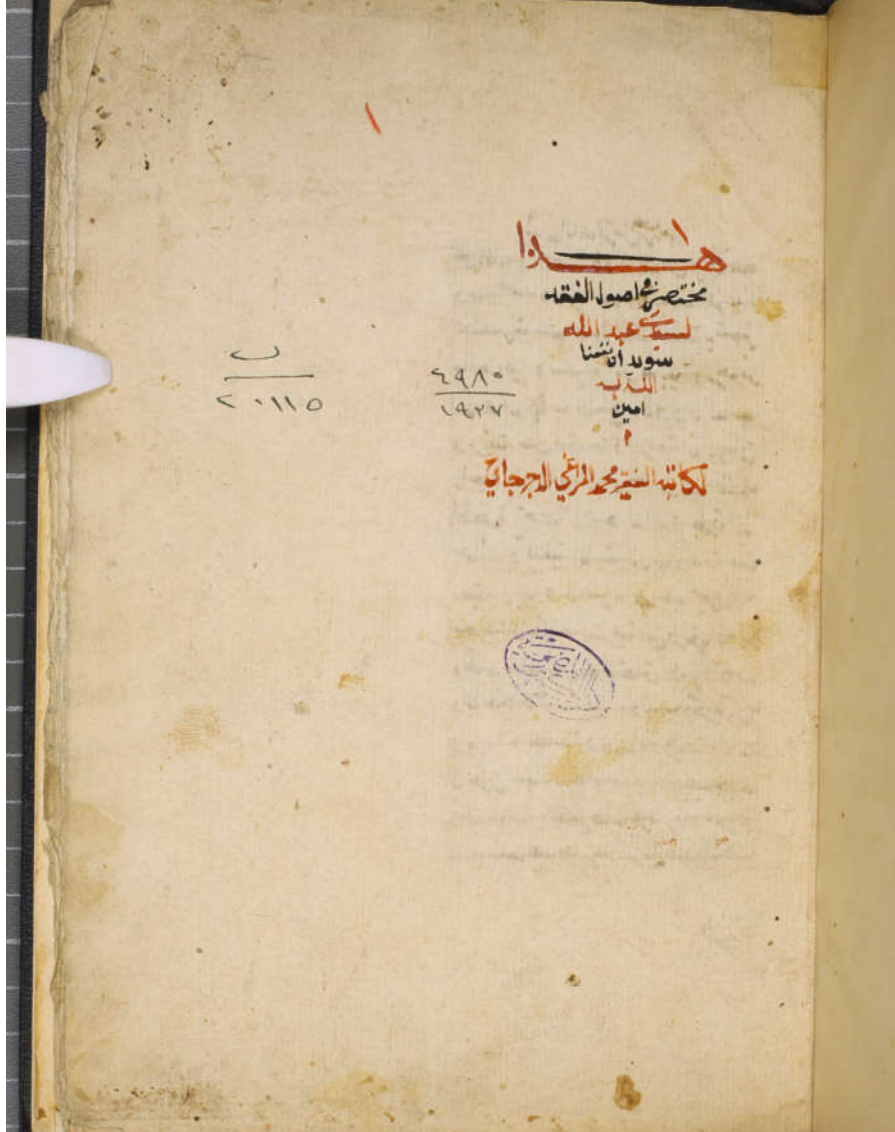 ١
هذا
مختصر في اصول الفقه
لسيدي عبد الله
سويدان نفعنا
الله به
امين
لكاتبه الفقير محمد المراغي الجرجاوي
٤٩٨٥
١٩٢٧
ب
٢٠١١٥